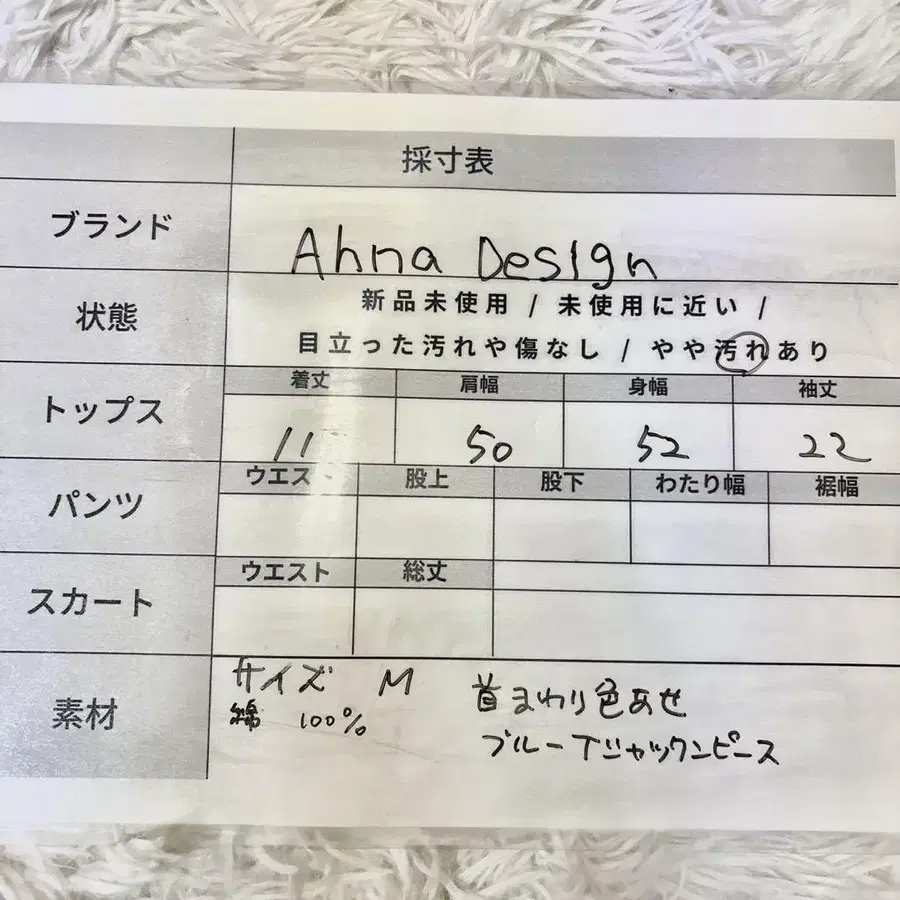 採寸表
ブランド Ahna Design
状態 新品未使用 / 未使用に近い /
目立った汚れや傷なし / やや汚れあり
トップス 着丈 肩幅 身幅 袖丈
11 50 52 22
パンツ ウエス 股上 股下 わたり幅 裾幅
スカート ウエスト 総丈
素材 サイズ M 首まわり色あせ
綿 100% ブルーTシャツワンピース